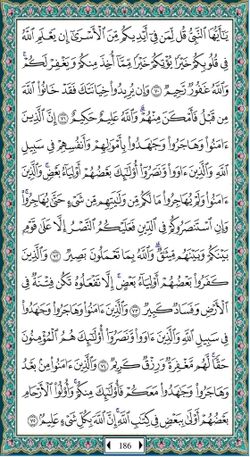 يَٰٓأَيُّهَا ٱلنَّبِىُّ قُل لِّمَن فِىٓ أَيْدِيكُم مِّنَ ٱلْأَسْرَىٰٓ إِن يَعْلَمِ ٱللَّهُ
فِى قُلُوبِكُمْ خَيْرًا يُؤْتِكُمْ خَيْرًا مِّمَّآ أُخِذَ مِنكُمْ وَيَغْفِرْ لَكُمْ ۗ
وَٱللَّهُ غَفُورٌ رَّحِيمٌ ٧٠ وَإِن يُرِيدُوا۟ خِيَانَتَكَ فَقَدْ خَانُوا۟ ٱللَّهَ
مِن قَبْلُ فَأَمْكَنَ مِنْهُمْ ۗ وَٱللَّهُ عَلِيمٌ حَكِيمٌ ٧١ إِنَّ ٱلَّذِينَ
ءَامَنُوا۟ وَهَاجَرُوا۟ وَجَٰهَدُوا۟ بِأَمْوَٰلِهِمْ وَأَنفُسِهِمْ فِى سَبِيلِ
ٱللَّهِ وَٱلَّذِينَ ءَاوَوا۟ وَّنَصَرُوٓا۟ أُو۟لَٰٓئِكَ بَعْضُهُمْ أَوْلِيَآءُ بَعْضٍ ۚ وَٱلَّذِينَ
ءَامَنُوا۟ وَلَمْ يُهَاجِرُوا۟ مَا لَكُم مِّن وَلَٰيَتِهِم مِّن شَىْءٍ حَتَّىٰ يُهَاجِرُوا۟ ۚ
وَإِنِ ٱسْتَنصَرُوكُمْ فِى ٱلدِّينِ فَعَلَيْكُمُ ٱلنَّصْرُ إِلَّا عَلَىٰ قَوْمٍۭ
بَيْنَكُمْ وَبَيْنَهُم مِّيثَٰقٌ ۗ وَٱللَّهُ بِمَا تَعْمَلُونَ بَصِيرٌ ٧٢ وَٱلَّذِينَ
كَفَرُوا۟ بَعْضُهُمْ أَوْلِيَآءُ بَعْضٍ ۚ إِلَّا تَفْعَلُوهُ تَكُن فِتْنَةٌ فِى
ٱلْأَرْضِ وَفَسَادٌ كَبِيرٌ ٧٣ وَٱلَّذِينَ ءَامَنُوا۟ وَهَاجَرُوا۟ وَجَٰهَدُوا۟
فِى سَبِيلِ ٱللَّهِ وَٱلَّذِينَ ءَاوَوا۟ وَّنَصَرُوٓا۟ أُو۟لَٰٓئِكَ هُمُ ٱلْمُؤْمِنُونَ
حَقًّا ۚ لَّهُم مَّغْفِرَةٌ وَرِزْقٌ كَرِيمٌ ٧٤ وَٱلَّذِينَ ءَامَنُوا۟ مِنۢ بَعْدُ
وَهَاجَرُوا۟ وَجَٰهَدُوا۟ مَعَكُمْ فَأُو۟لَٰٓئِكَ مِنكُمْ ۚ وَأُو۟لُوا۟ ٱلْأَرْحَامِ
بَعْضُهُمْ أَوْلَىٰ بِبَعْضٍ فِى كِتَٰبِ ٱللَّهِ ۗ إِنَّ ٱللَّهَ بِكُلِّ شَىْءٍ عَلِيمٌۢ ٧٥
186